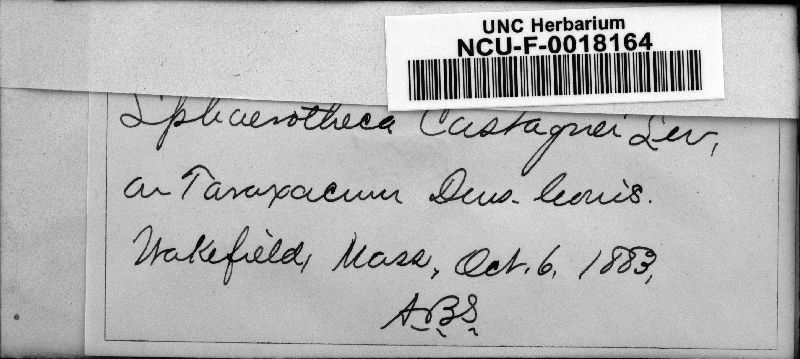 UNC Herbarium
NCU-F-0018164
Sphaerotheca Castagnei Lev,
on Taraxacum Dens-leonis.
Wakefield, Mass, Oct. 6, 1883,
A.B.S.